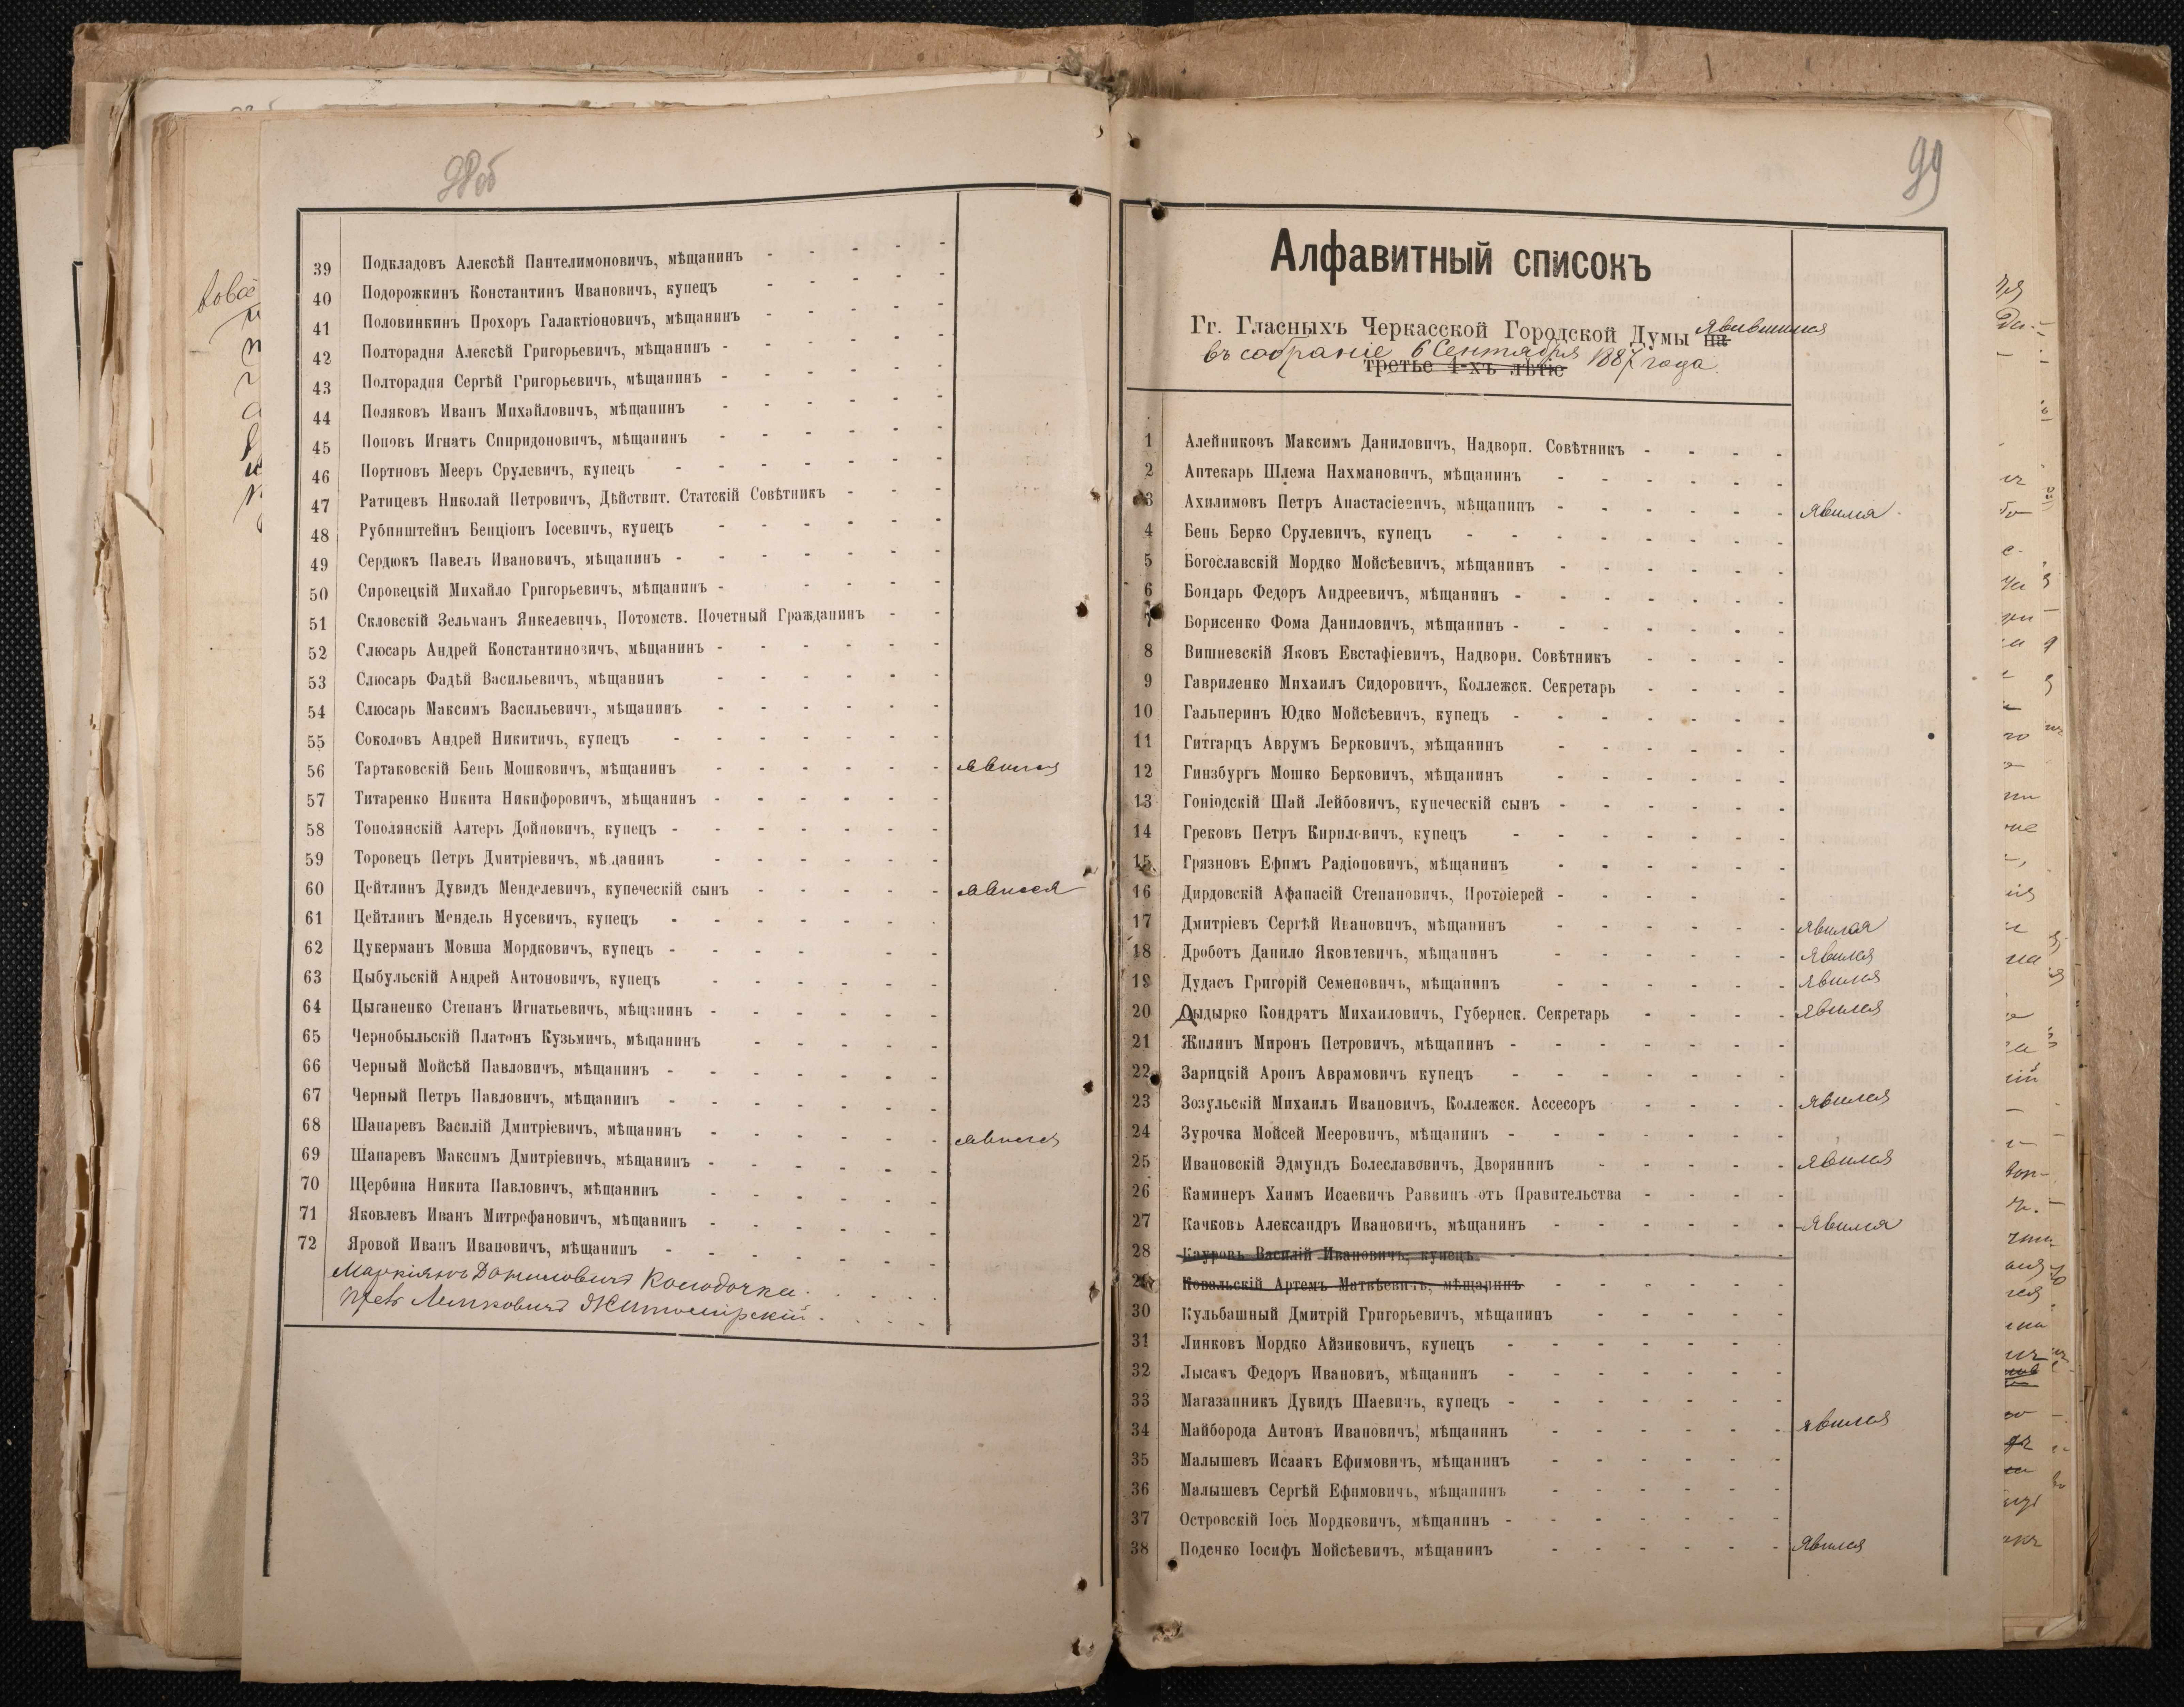 98об
39 Подкладовъ Алексѣй Пантелимоновичъ, мѣщанинъ
40 Подорожкинъ Константинъ Ивановичъ, купецъ
41 Половинкинъ Прохоръ Галактіоновичъ, мѣщанинъ
42 Полторадня Алексѣй Григорьевичъ, мѣщанинъ
43 Полторадня Сергѣй Григорьевичъ, мѣщанинъ
44 Поляковъ Иванъ Михайловичъ, мѣщанинъ
45 Поповъ Игнатъ Спиридоновичъ, мѣщанинъ
46 Портновъ Мееръ Срулевичъ, купецъ
47 Ратицевъ Николай Петровичъ, Дѣйствит. Статскій Совѣтникъ
48 Рубинштейнъ Бенціонъ Іосевичъ, купецъ
49 Сердюкъ Павелъ Ивановичъ, мѣщанинъ
50 Сировецкій Михайло Григорьевичъ, мѣщанинъ
51 Скловскій Зельманъ Янкелевичъ, Потомств. Почетный Гражданинъ
52 Слюсарь Андрей Константиновичъ, мѣщанинъ
53 Слюсарь Фадѣй Васильевичъ, мѣщанинъ
54 Слюсарь Максимъ Васильевичъ, мѣщанинъ
55 Соколовъ Андрей Никитичъ, купецъ
56 Тартаковскій Бень Мошковичъ, мѣщанинъ явился
57 Титаренко Никита Никифоровичъ, мѣщанинъ
58 Тополянскій Алтеръ Дойновичъ, купецъ
59 Торовецъ Петръ Дмитріевичъ, мѣщанинъ
60 Цейтлинъ Дувидъ Менделевичъ, купеческій сынъ явился
61 Цейтлинъ Мендель Нусевичъ, купецъ
62 Цукерманъ Мовша Мордковичъ, купецъ
63 Цыбульскій Андрей Антоновичъ, купецъ
64 Цыганенко Степанъ Игнатьевичъ, мѣщанинъ
65 Чернобыльскій Платонъ Кузьмичъ, мѣщанинъ
66 Черный Мойсѣй Павловичъ, мѣщанинъ
67 Черный Петръ Павловичъ, мѣщанинъ
68 Шапаревъ Василій Дмитріевичъ, мѣщанинъ явился
69 Шапаревъ Максимъ Дмитріевичъ, мѣщанинъ
70 Щербина Никита Павловичъ, мѣщанинъ
71 Яковлевъ Иванъ Митрофановичъ, мѣщанинъ
72 Яровой Иванъ Ивановичъ, мѣщанинъ
Маркіянъ Даниловичъ Колодочка
Лейковичъ Житомірскій
99
Алфавитный списокъ
Гг. Гласныхъ Черкасской Городской Думы на явившихся
въ собраніе 6 Сентября 1887 года.
третье 4-хъ лѣтіе
1 Алейниковъ Максимъ Даниловичъ, Надворн. Совѣтникъ
2 Аптекарь Шлема Нахмановичъ, мѣщанинъ
3 Ахилимовъ Петръ Анастасіевичъ, мѣщанинъ явился
4 Бень Берко Срулевичъ, купецъ
5 Богославскій Мордко Мойсѣевичъ, мѣщанинъ
6 Бондарь Федоръ Андреевичъ, мѣщанинъ
7 Борисенко Фома Даниловичъ, мѣщанинъ
8 Вишневскій Яковъ Евстафіевичъ, Надворн. Совѣтникъ
9 Гавриленко Михаилъ Сидоровичъ, Коллежск. Секретарь
10 Гальперинъ Юдко Мойсѣевичъ, купецъ
11 Гитгарцъ Аврумъ Берковичъ, мѣщанинъ
12 Гинзбургъ Мошко Берковичъ, мѣщанинъ
13 Гоніодскій Шай Лейбовичъ, купеческій сынъ
14 Грековъ Петръ Кириловичъ, купецъ
15 Грязновъ Ефимъ Радіоновичъ, мѣщанинъ
16 Дирдовскій Афанасій Степановичъ, Протоіерей
17 Дмитріевъ Сергѣй Ивановичъ, мѣщанинъ явился
18 Дроботъ Данило Яковлевичъ, мѣщанинъ явился
19 Дудасъ Григорій Семеновичъ, мѣщанинъ явился
20 Дыдырко Кондратъ Михаиловичъ, Губернск. Секретарь явился
21 Жилинъ Миронъ Петровичъ, мѣщанинъ
22 Зарицкій Аронъ Аврамовичъ купецъ
23 Зозульскій Михаилъ Ивановичъ, Коллежск. Ассесоръ явился
24 Зурочка Мойсей Мееровичъ, мѣщанинъ
25 Ивановскій Эдмундъ Болеславовичъ, Дворянинъ явился
26 Каминеръ Хаимъ Исаевичъ Раввинъ отъ Правительства
27 Качковъ Александръ Ивановичъ, мѣщанинъ явился
28 Кауровъ Василій Ивановичъ, купецъ
29 Ковальскій Артемъ Матвѣевичъ, мѣщанинъ
30 Кульбашный Дмитрій Григорьевичъ, мѣщанинъ
31 Линковъ Мордко Айзиковичъ, купецъ
32 Лысакъ Федоръ Ивановиъ, мѣщанинъ
33 Магазанникъ Дувидъ Шаевичъ, купецъ
34 Майборода Антонъ Ивановичъ, мѣщанинъ явился
35 Малышевъ Исаакъ Ефимовичъ, мѣщанинъ
36 Малышевъ Сергѣй Ефимовичъ, мѣщанинъ
37 Островскій Іось Мордковичъ, мѣщанинъ
38 Поденко Іосифъ Мойсѣевичъ, мѣщанинъ явился